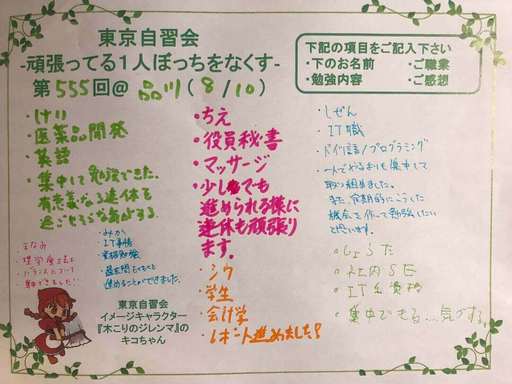 東京自習会
-頑張ってる1人ぼっちをなくす-
第555回@品川(8/10)
下記の項目をご記入下さい
・下のお名前 ・ご職業
・勉強内容 ・ご感想
・けい
・医薬品開発
・英語
・集中して勉強できた。
有意義な連休を
過ごせそうな気がする。
・ちえ
・役員秘書
・マッサージ
・少しでも
進められる様に
連休も頑張り
ます。
・しぜん
・IT職
・ドイツ語/プログラミング
・一人でやるよりも集中して
取り組めました。
また、定期的にこうした
機会を作って勉強したい
と思います。
・まなみ
・理学療法士
・バランスについて
・集中できました!
・IT事務
・過去問をもくもくと
進めることができました。
・ジウ
・学生
・会計学
・レポート進めました!
・しょうた
・社内SE
・IT系資格
・集中できる…気がする。
東京自習会
イメージキャラクター
『木こりのジレンマ』の
キコちゃん